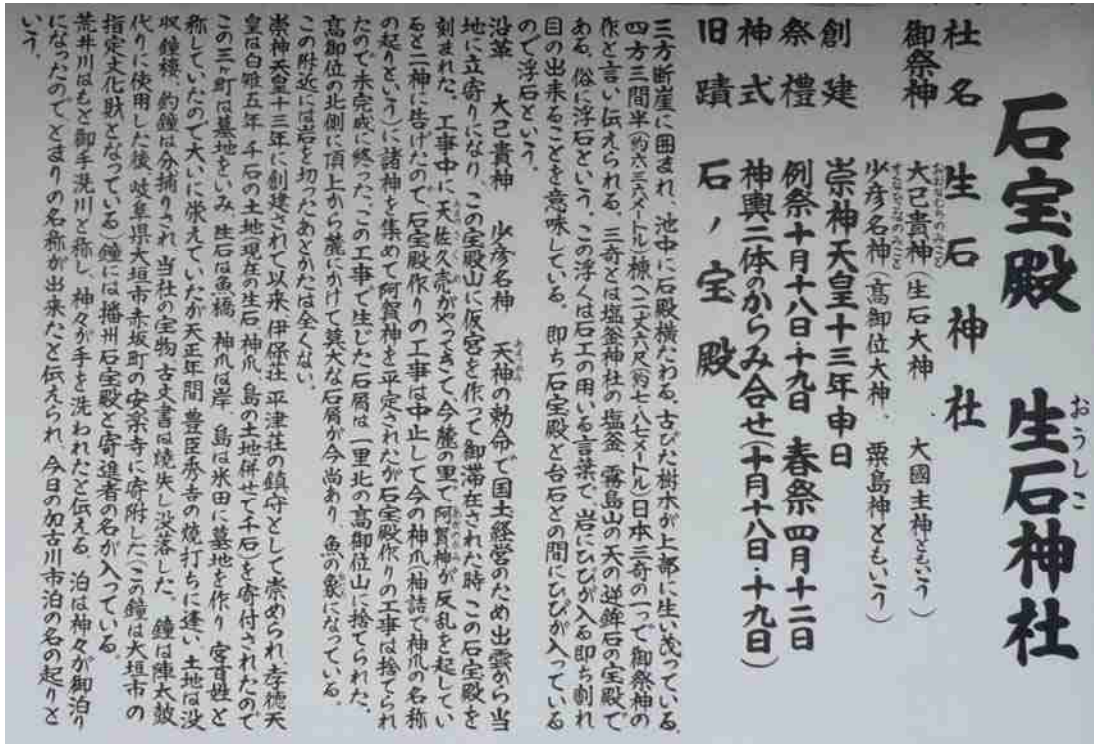 石宝殿　生石神社
おうしこ
社名　生石神社
御祭神　大己貴神(生石大神　大國主神ともいう)
おおなむちのみこと
少彦名神(高御位大神、粟島神ともいう)
すくなひこなのみこと
創建　崇神天皇十三年申日
祭禮　例祭十月十八日・十九日　春祭四月十二日
神式　神輿二体のからみ合せ(十月十八日・十九日)
旧蹟　石ノ宝殿
三方断崖に囲まれ、池中に石殿横たわる。古びた樹木が上部に生い茂っている。
四方三間半(約六・三六メートル)棟へ二丈六尺(約七・八七メートル)日本三奇の一つで御祭神の
作と言い伝えられる。三奇とは塩釜神社の塩釜　霧島山の天の逆鉾石の宝殿で
ある。俗に浮石という。この浮くは石工の用いる言葉で、岩にひびが入る即ち割れ
目の出来ることを意味している。即ち石宝殿と台石との間にひびが入っている
ので浮石という。
沿革　大己貴神　少彦名神　天神の勅命で国土経営のため出雲から当
あまつかみ
地に立寄りになり、この宝殿山に仮宮を作って御滞在された時　この石宝殿を
刻まれた。工事中に天佐久売がやってきて、今麓の里で阿賀神が反乱を起してい
ると二神に告げたので、石宝殿作りの工事は中止して今の神爪(神詰で神爪の名称
の起りという)に諸神を集めて阿賀神を平定されたが石宝殿作りの工事は捨てられ
たので未完成に終った。この工事で生じた石屑は一里北の高御位山に捨てられた。
高御位の北側に頂上から麓にかけて莫大な石屑が今尚あり、魚の象になっている。
この附近には岩を切ったあとかたは全くない。
崇神天皇十三年に創建されて以来、伊保荘　平津荘の鎮守として崇められ、孝徳天
皇は白雉五年　千石の土地現在の生石　神爪　島の土地併せて千石)を寄付されたので
この三ヶ町は墓地をいみ、生石は魚橋　神爪は岸　島は米田に墓地を作り　宮百姓と
称していたので大いに栄えていたが天正年間　豊臣秀吉の焼打ちに逢い、土地は没
収　鐘楼、釣鐘は分捕りされ　当社の宝物　古文書は焼失し没落した。鐘は陣太鼓
代りに使用した後　岐阜県大垣市赤坂町の安楽寺に寄附した(この鐘は大垣市の
指定文化財となっている)鐘には播州石宝殿と寄進者の名が入っている。
荒井川はもと御手洗川と称し、神々が手を洗われたと伝える。泊は神々が御泊り
になったのでとまりの名称が出来たと伝えられ、今日の加古川市泊の名の起りと
いう。